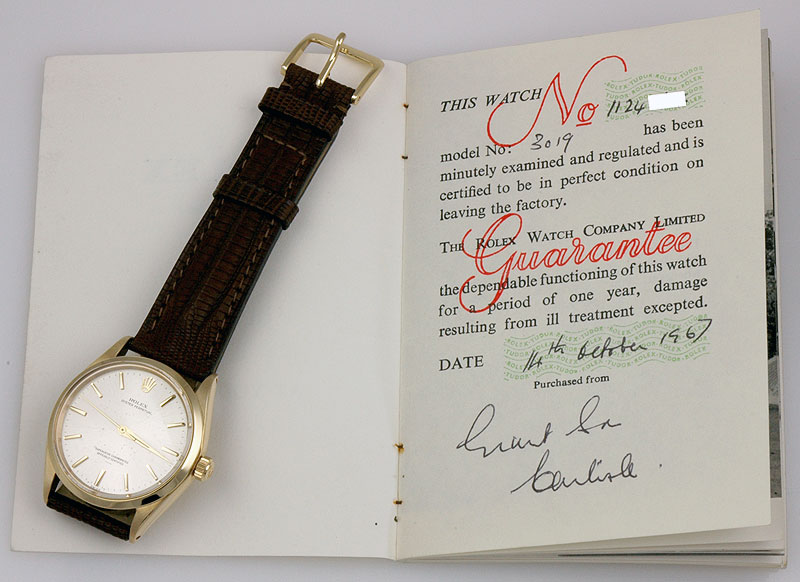 THIS WATCH No 1124
model No: 3019 has been
minutely examined and regulated and is
certified to be in perfect condition on
leaving the factory.
THE ROLEX WATCH COMPANY LIMITED
Guarantee
the dependable functioning of this watch
for a period of one year, damage
resulting from ill treatment excepted.
DATE 14th October 1967
Purchased from
Carlisle.
ROLEX
OYSTER PERPETUAL